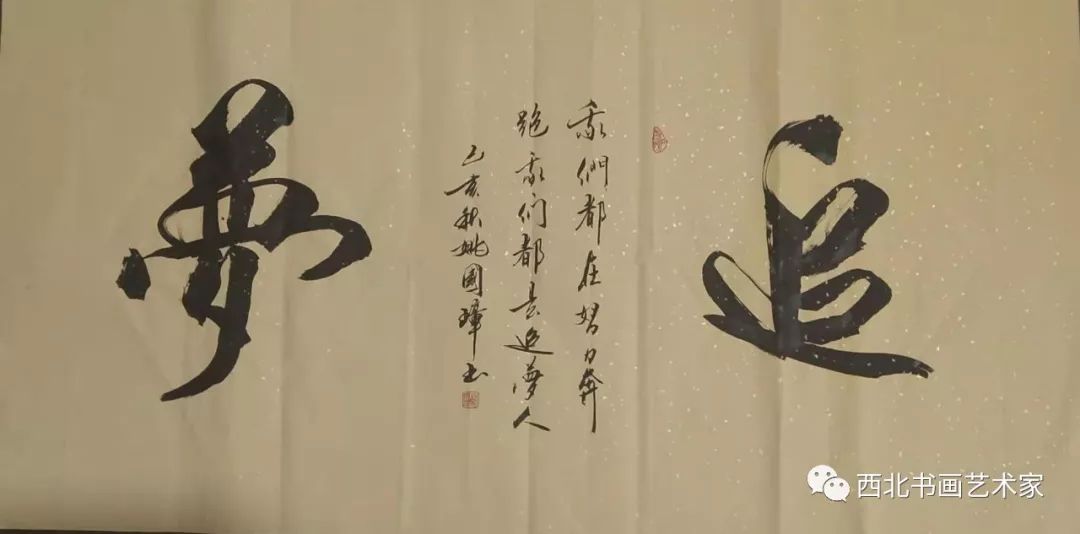 追
我們都在努力奔
跑我们都是追夢人
乙亥秋姚國璋书
夢
西北书画艺术家